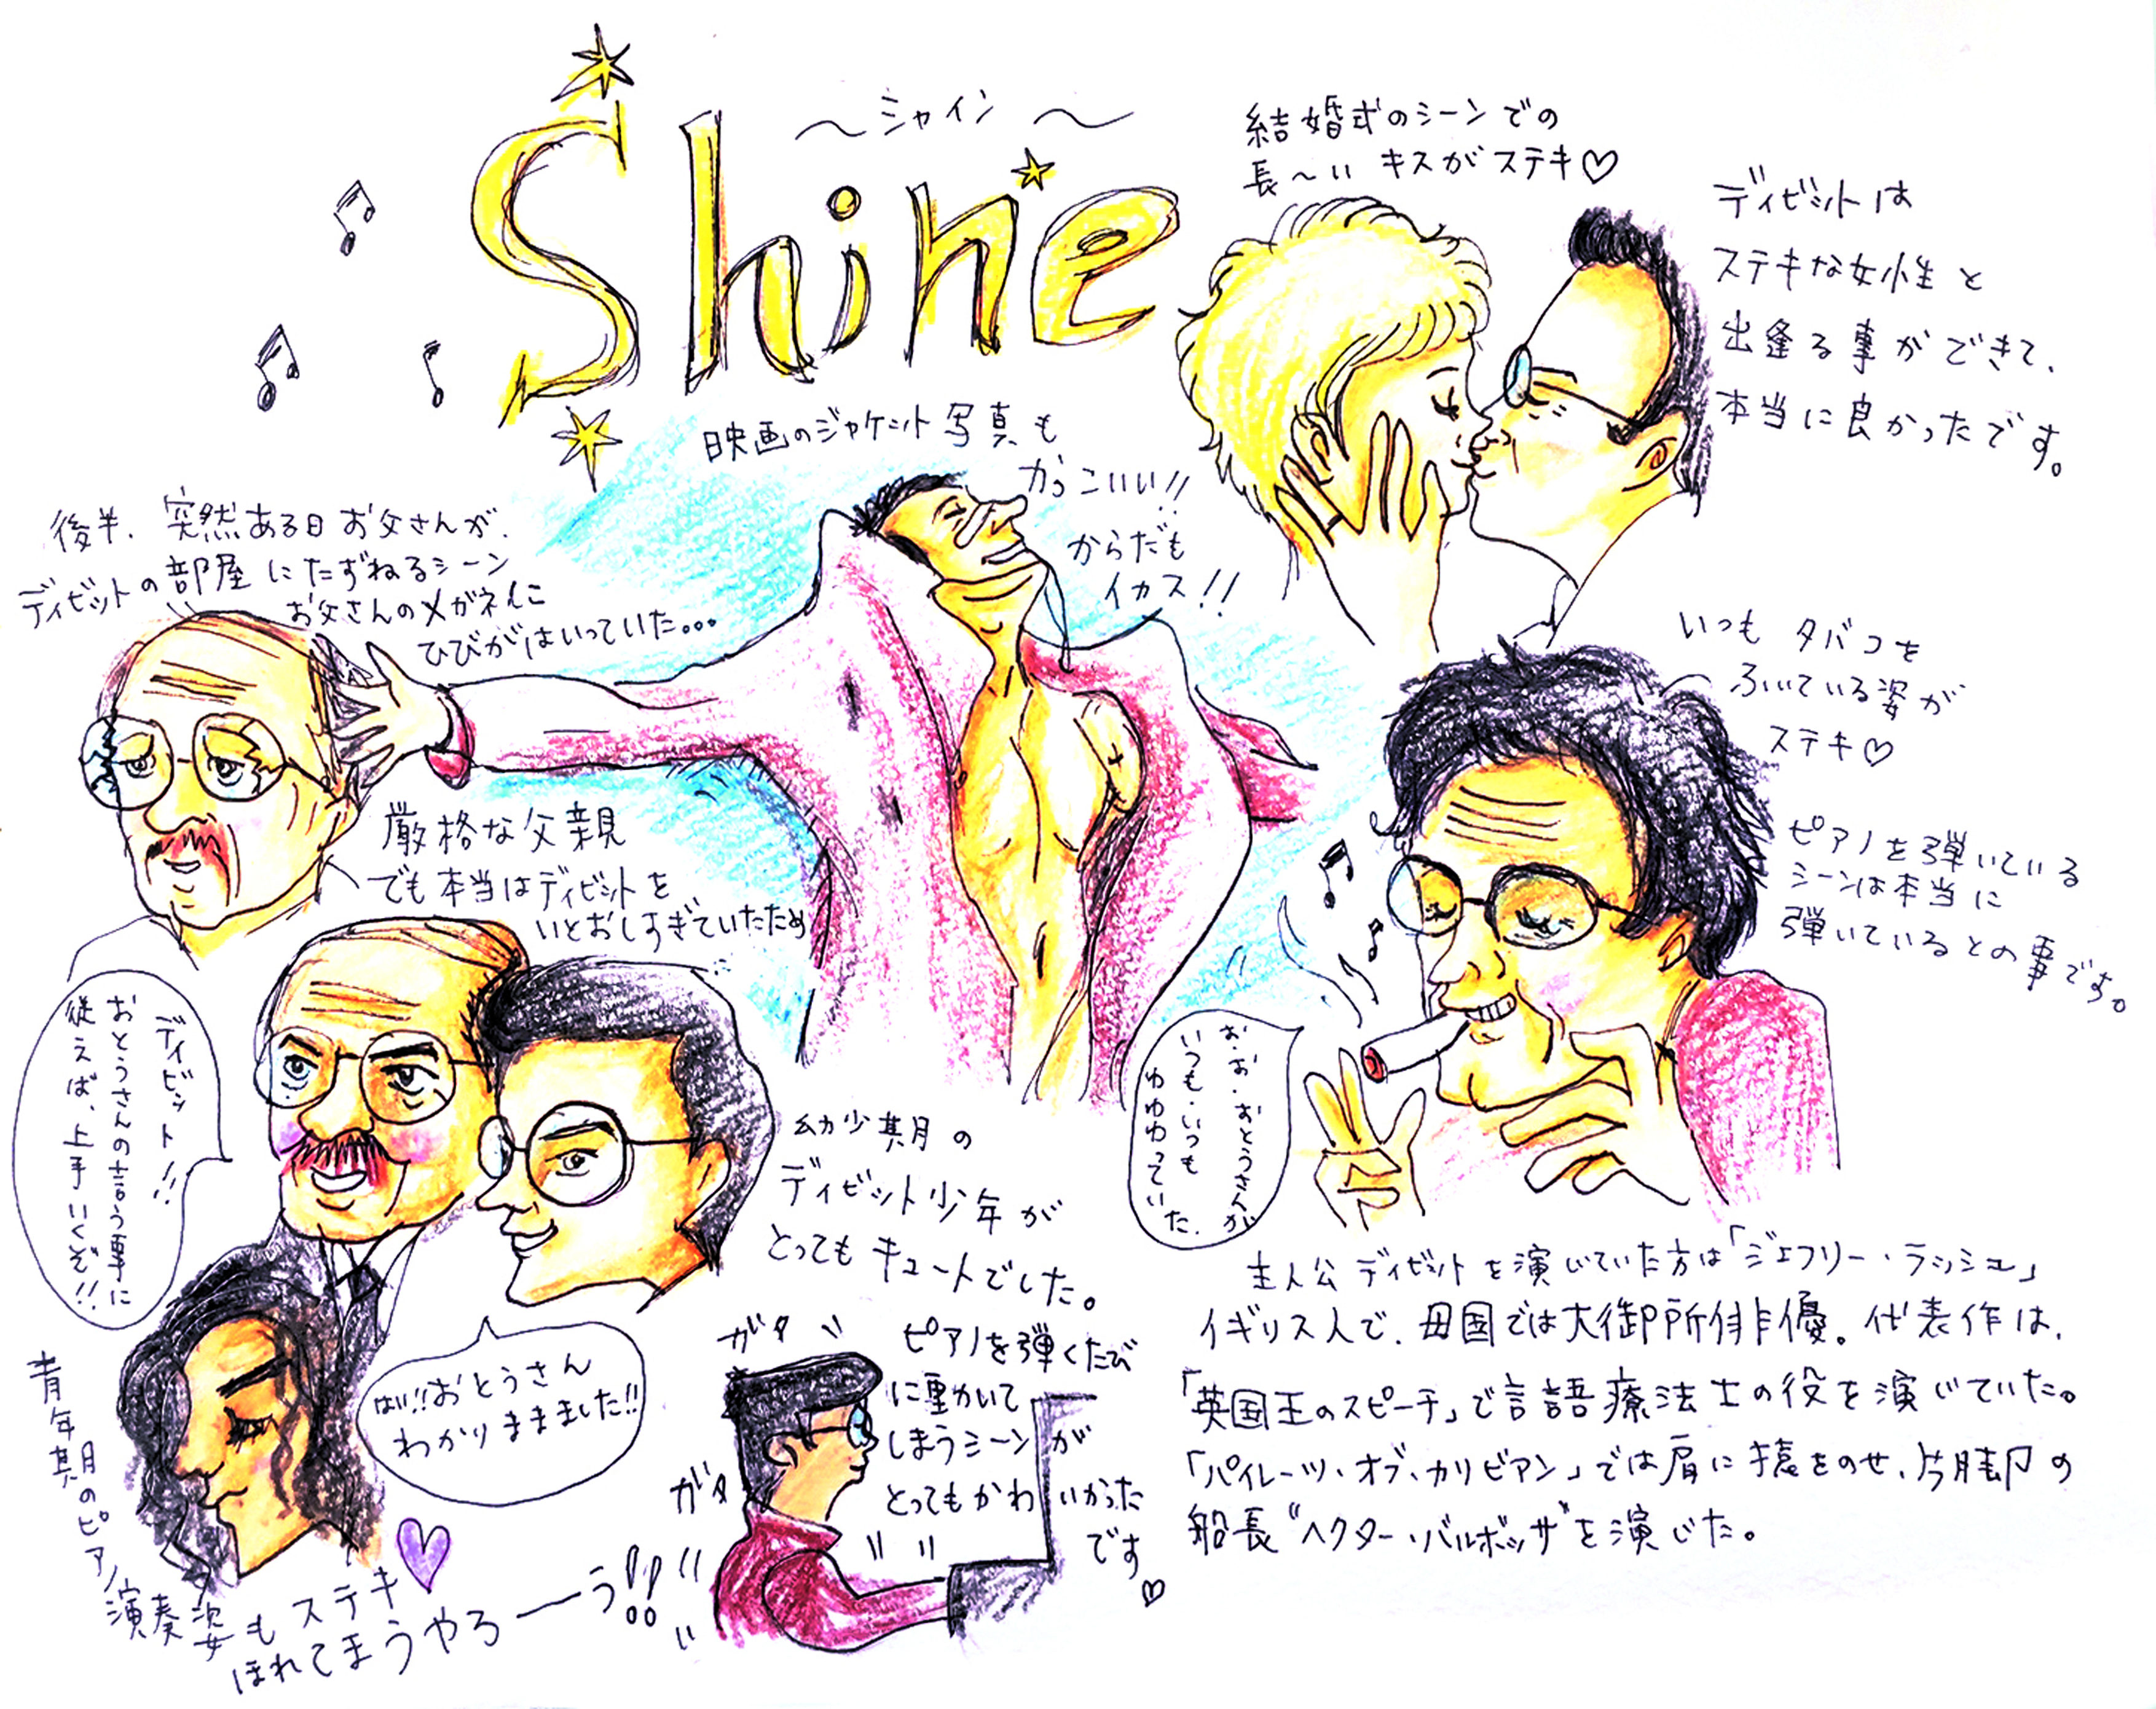 Shine
～シャイン～
結婚式のシーンでの
長～い キスがステキ♡
ディビットは
ステキな女性と
出逢る事ができて、
本当に良かったです。
映画のジャケット写真も
かっこいい!!
からだも
イカス!!
後半、突然ある日お父さんが、
ディビットの部屋にたずねるシーン
お父さんのメガネに
ひびがはいっていた...
いつも タバコを
ふいている姿が
ステキ♡
厳格な父親
でも本当はディビットを
いとおしすぎていたため
ピアノを弾いている
シーンは本当に
弾いているとの事です。
ディビット!!
おとうさんの言う事に
従えば、上手いくぞ!!
お・お・おとうさんが
いつも・いつも
ゆゆゆっていた.
幼少期の
ディビット少年が
とってもキュートでした。
はい!!おとうさん
わかりままました!!
ガタ
ガタ
ピアノを弾くたび
に動かいて
しまうシーンが
とってもかわいかった
です♡
青年期のピアノ演奏姿もステキ
ほれてまうやろーーう!!
主人公ディビットを演じていた方は「ジェフリー・ラッシュ」
イギリス人で、母国では大御所俳優。代表作は、
「英国王のスピーチ」で言語療法士の役を演じていた。
「パイレーツ・オブ・カリビアン」では肩に猿をのせ、片脚の
船長“ヘクター・バルボッサ”を演じた。